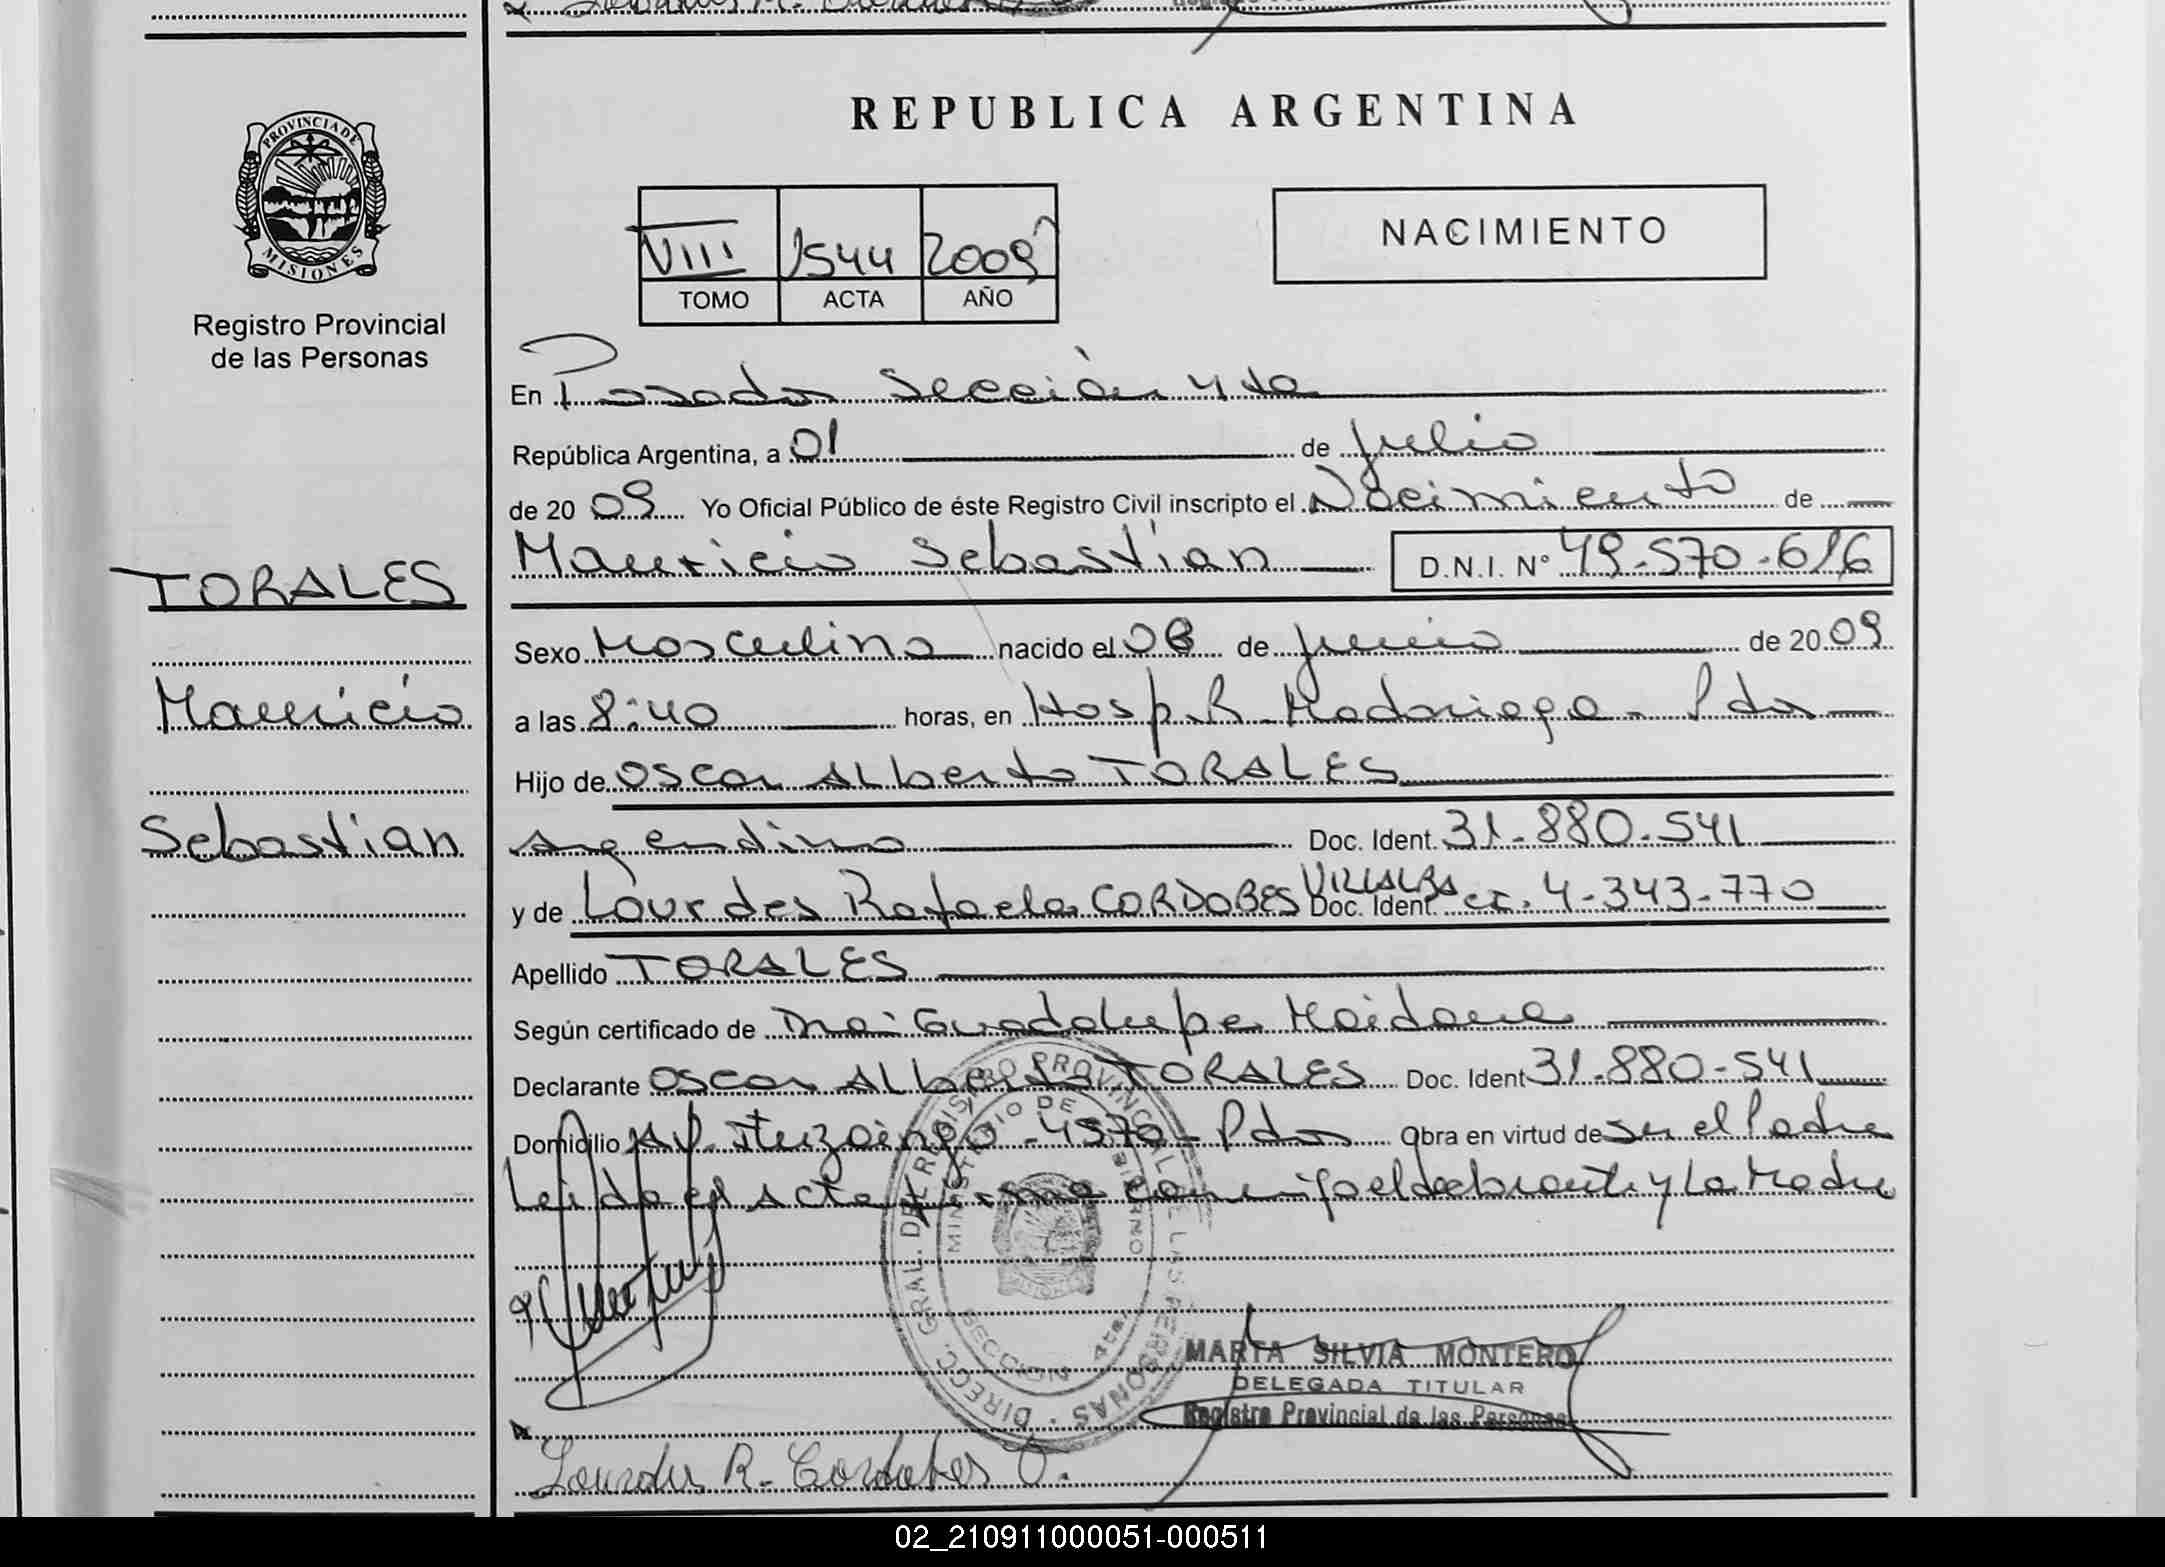 REPUBLICA ARGENTINA
PROVINCIA DE
MISIONES
Registro Provincial
de las Personas
VIII 1544 2009
TOMO ACTA AÑO
NACIMIENTO
En Posadas Sección 4ta
República Argentina, a 01 de julio
de 2009 Yo Oficial Público de éste Registro Civil inscripto el Nacimiento de
Mauricio Sebastian D.N.I. Nº 49.570.616
TORALES
Mauricio
Sebastian
Sexo Masculino nacido el 08 de junio de 2009
a las 8:40 horas, en Hosp. R. Madariaga - Pdas
Hijo de Oscar Alberto TORALES
Argentino Doc. Ident. 31.880.541
y de Lourdes Rafaela CORDOBES VILLALBA Doc. Ident. CI. 4.343.770
Apellido TORALES
Según certificado de Dra. Guadalupe Maidana
Declarante Oscar Alberto TORALES Doc. Ident 31.880.541
Domicilio Av. Ituzaingo 4970 - Pdas Obra en virtud de ser el Padre
Leida el Acta firma conmigo el declarante y La Madre
DIRECC. GRAL. DEL REGISTRO PROVINCIAL DE LAS PERSONAS
MINISTERIO DE GOBIERNO
SECCION 4ta.
MARTA SILVIA MONTERO
DELEGADA TITULAR
Registro Provincial de las Personas
Lourdes R. Cordobes V.
02_210911000051-000511